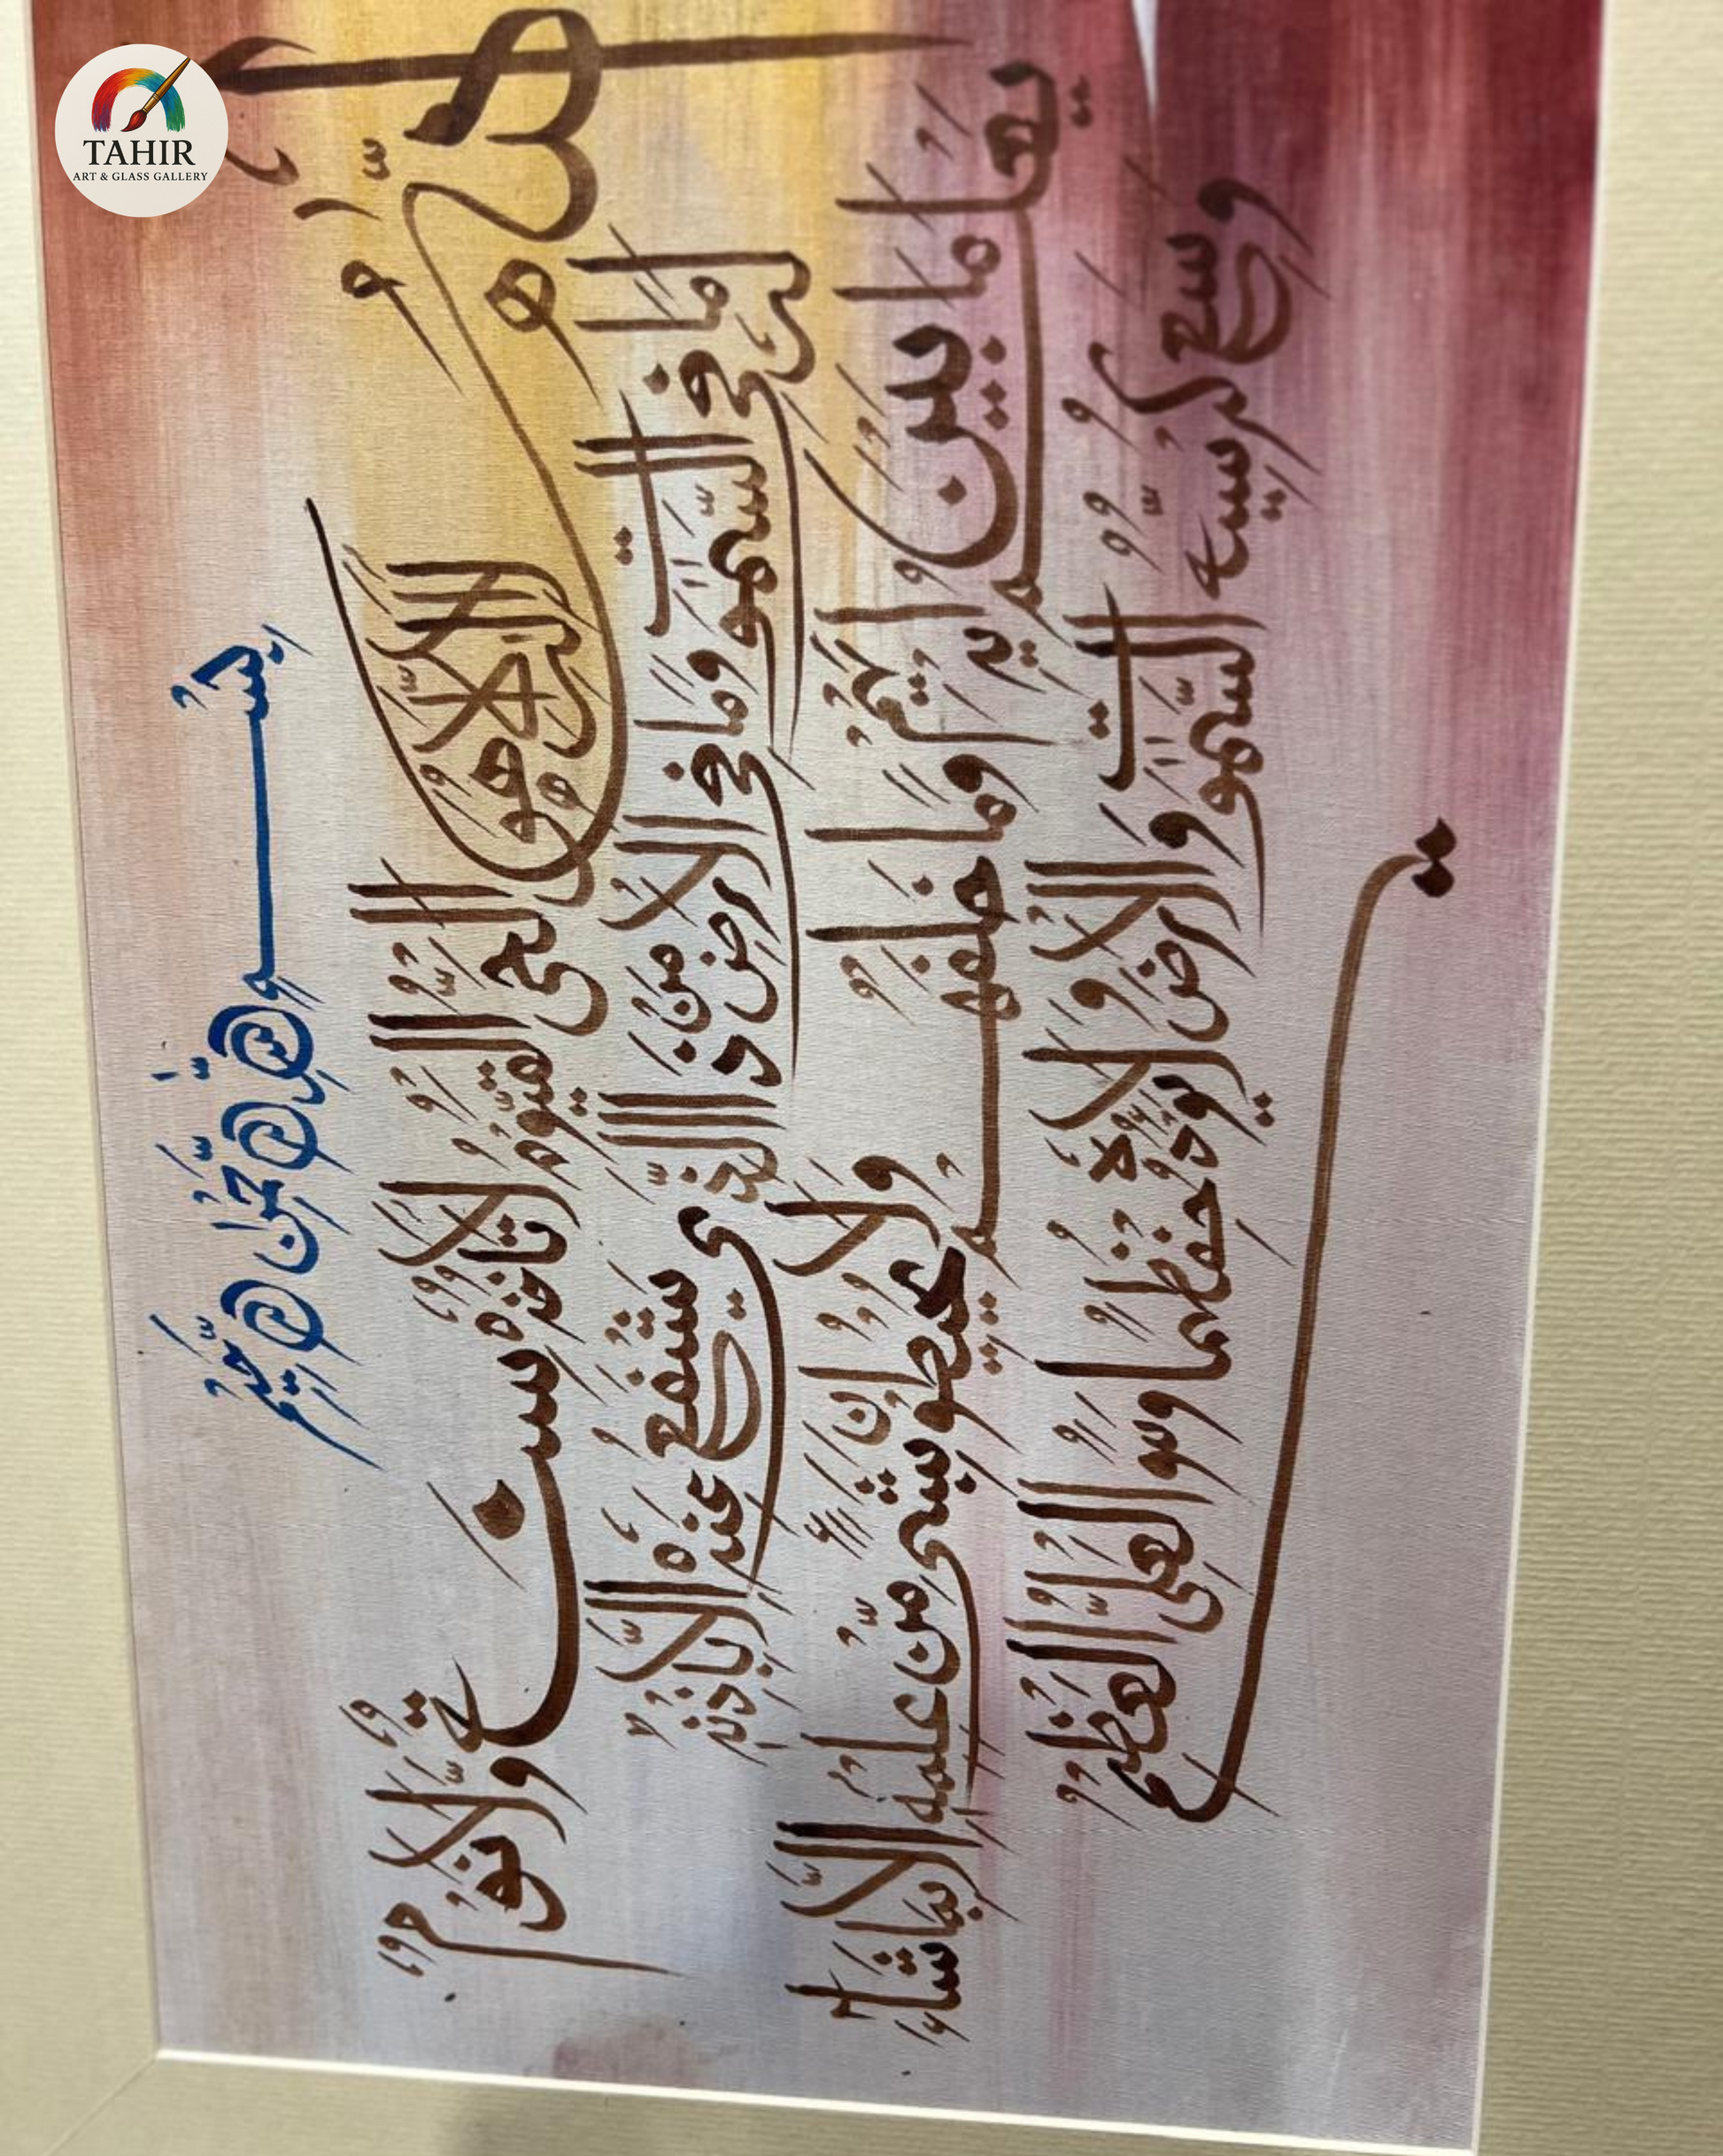 TAHIR
ART & GLASS GALLERY
بِسْمِ اللهِ الرَّحْمٰنِ الرَّحِيْمِ
اَللهُ لَآ اِلٰهَ اِلَّا هُوَ اَلْحَيُّ الْقَيُّوْمُ لَا تَاْخُذُهٗ سِنَةٌ وَّلَا نَوْمٌ
لَهٗ مَا فِي السَّمٰوٰتِ وَمَا فِي الْاَرْضِ مَنْ ذَا الَّذِيْ يَشْفَعُ عِنْدَهٗٓ اِلَّا بِاِذْنِهٖ
يَعْلَمُ مَا بَيْنَ اَيْدِيْهِمْ وَمَا خَلْفَهُمْ وَلَا يُحِيْطُوْنَ بِشَيْءٍ مِّنْ عِلْمِهٖٓ اِلَّا بِمَا شَآءَ
وَسِعَ كُرْسِيُّهُ السَّمٰوٰتِ وَالْاَرْضَ وَلَا يَـُٔوْدُهٗ حِفْظُهُمَا وَهُوَ الْعَلِيُّ الْعَظِيْمُ